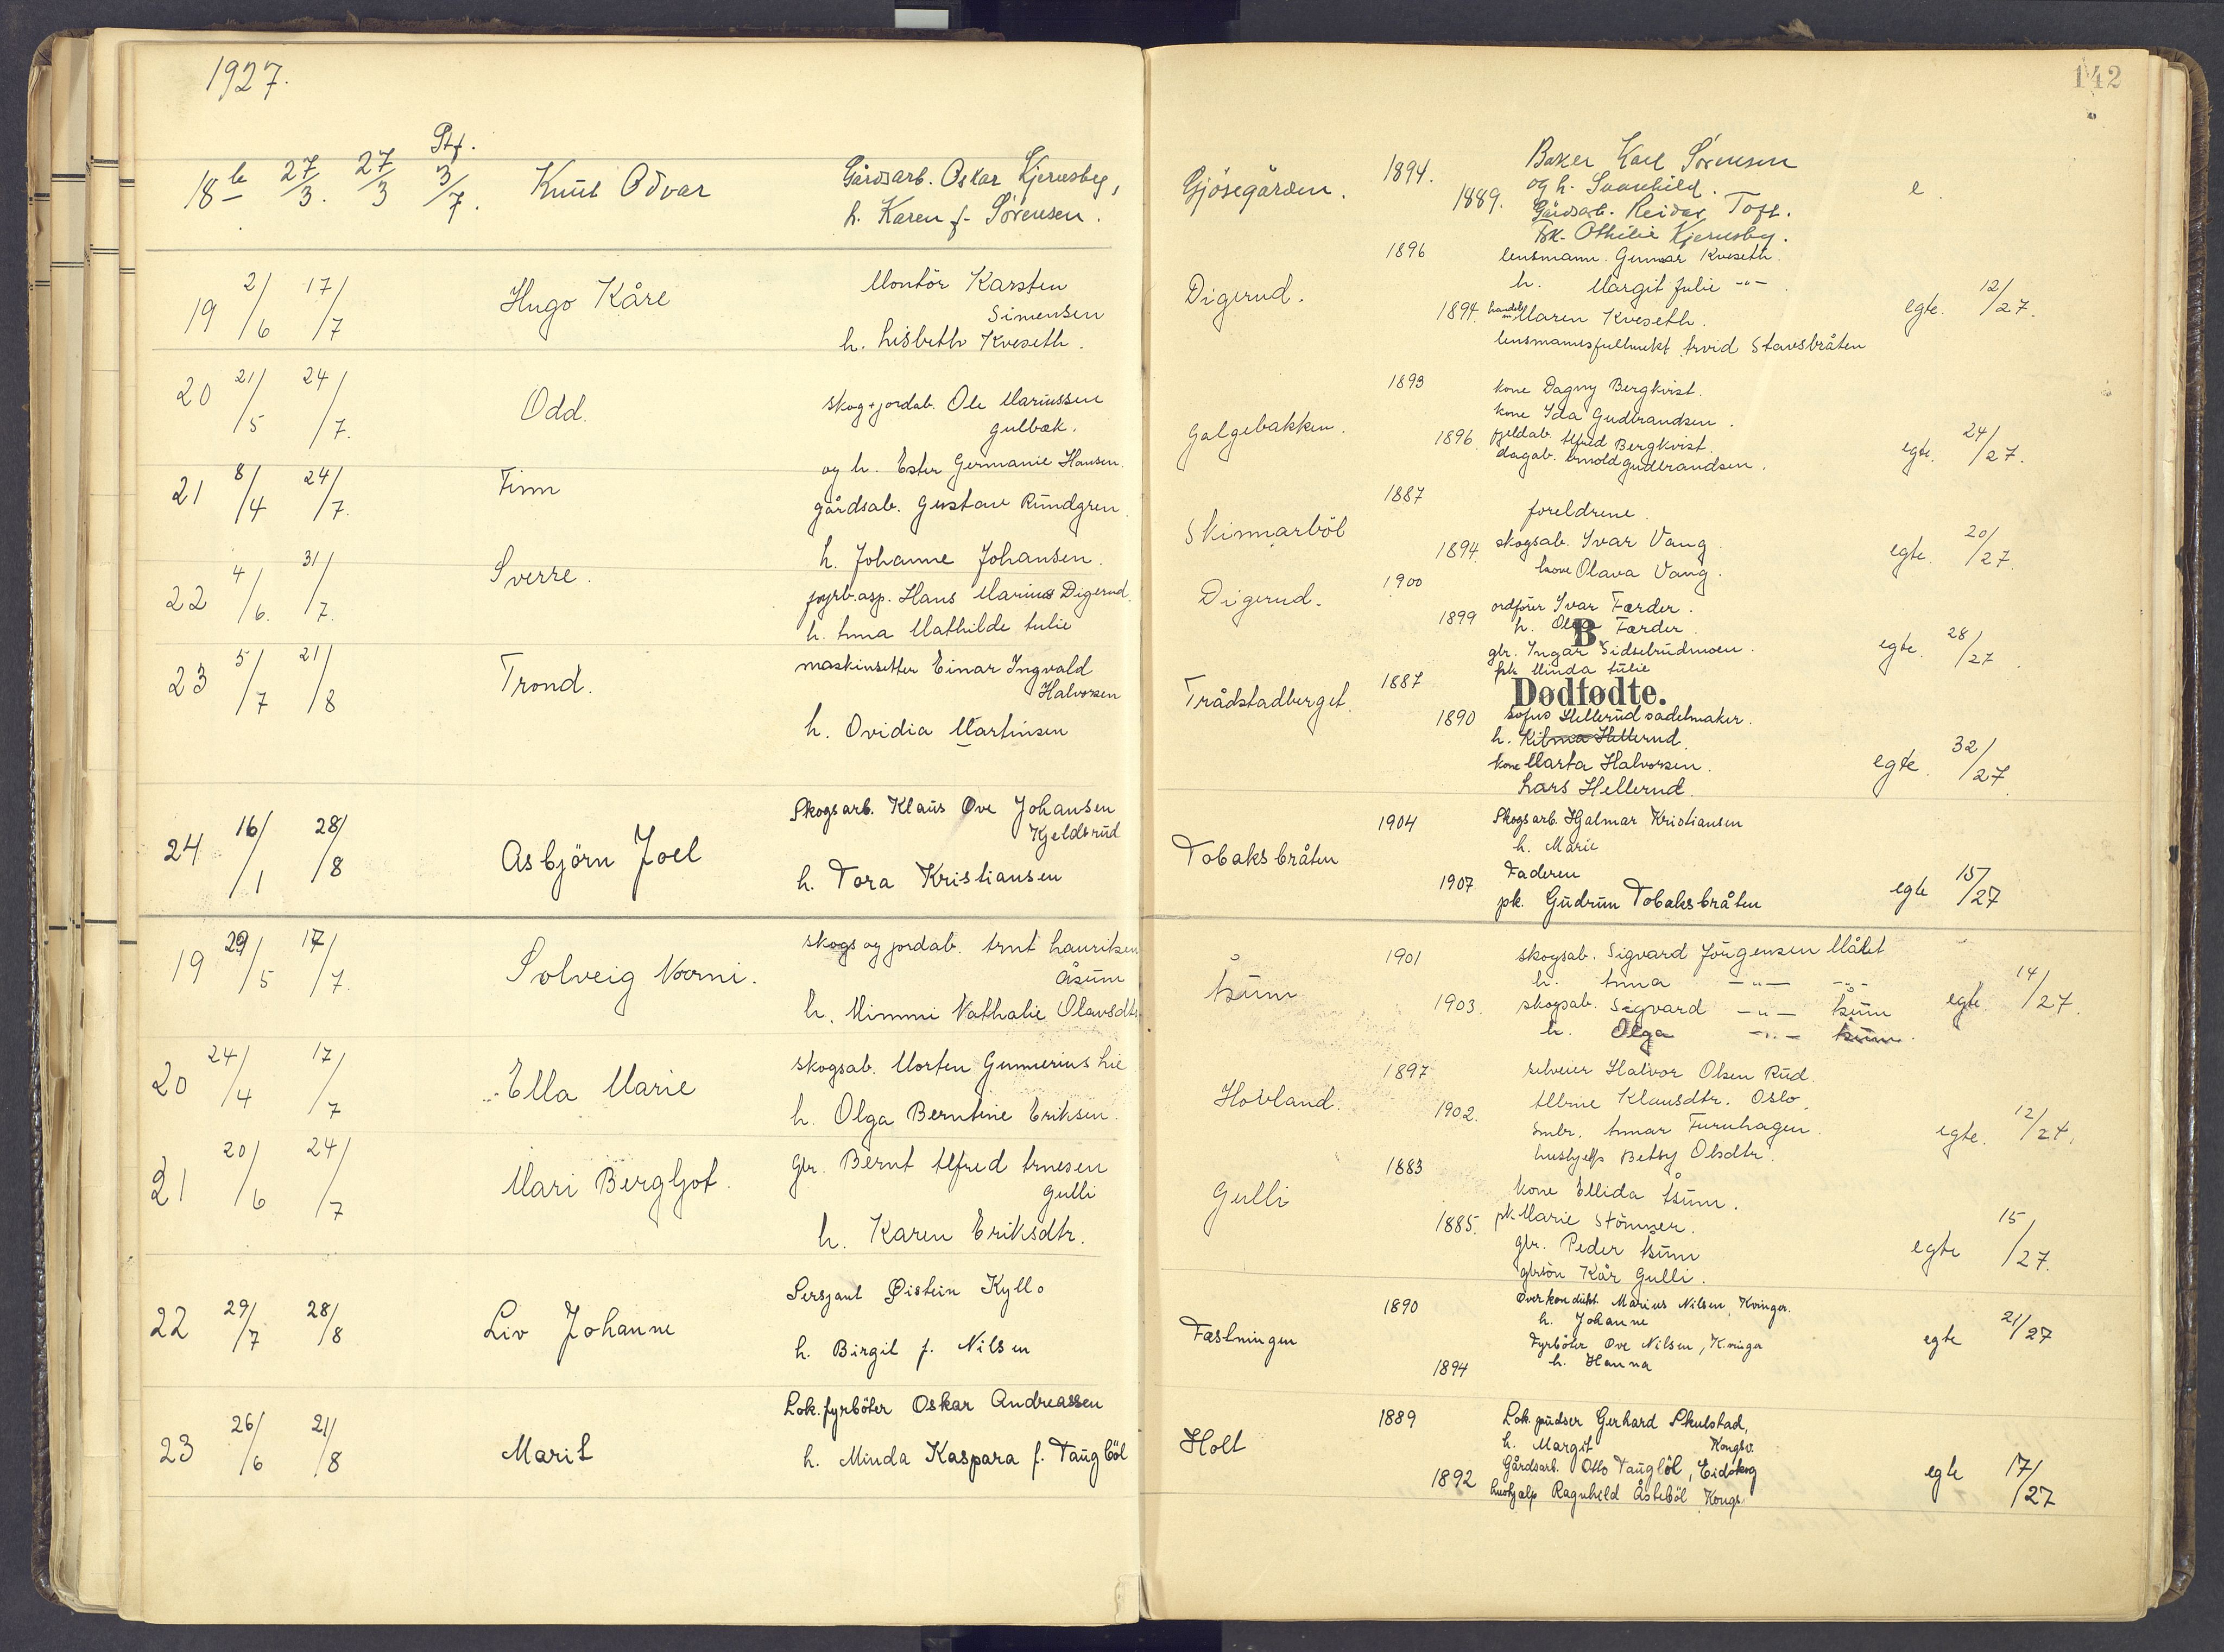 1927.
142
Stf.
18 b 27/3. 27/3 3/7. Knut Odvar Gårdsarb. Oskar Kjernsby,
h. Karen f. Sørensen.
Gjøsegården. 1894. 1889. Baker Karl Sørensen
og h. Svanhild.
Gårdsarb. Reidar Toft.
Pk. Othilie Kjernsby.
e.
19 2/6 17/7 Hugo Kåre Montör Karsten
Simensen
h. Lisbeth Kveseth.
Digerud. 1896 1894. lensmann. Gunnar Kveseth.
h. Margit Julie -"-
Maren Kveseth.
lensmannsfullmekt Arvid Stavsbråten
egte. 12/27.
20 21/5 24/7. Odd. skog+jordab. Ole Mariussen
gulbæk.
og h. Ester Germanie Hansen.
Galgebakken. 1893 1896. kone Dagny Bergkvist.
kone Ida Gudbrandsen.
fjeldab. Alfred Bergkvist.
dagab. Arnold gudbrandsen.
egte. 24/27.
21 8/4 24/7. Finn gårdsab. Gustav Rundgren.
h. Johanne Johansen.
Skinnarböl 1887 1894. foreldrene.
skogsab. Ivar Vang.
kone Olava Vang.
egte. 20/27.
22 4/6. 31/7. Sverre. fyrb.asp. Hans Marius Digerud.
h. Anna Mathilde Aulie
Digerud. 1900 1899 ordfører Ivar Færder.
h. Olga Færder.
B
gbr. Ingar Sidselrudmoen.
pk. Minda Aulie
egte. 28/27.
23 5/7 21/8 Trond. maskinsetter Einar Ingvald
Halvorsen
h. Ovidia Martinsen
Trådstadberget. 1887 1890 Dødfødte.
Sofus Hellerud sadelmaker.
h. Hellerud.
kone Marta Halvorsen.
Lars Hellerud.
egte. 32/27.
24 16/1 28/8 Asbjörn Joel Skogsarb. Klaus Ove Johansen
Kjeldsrud
h. Tora Kristiansen
Tobaksbråten 1904 1907 Skogsarb. Hjalmar Kristiansen
h. Marie
Faderen
pk. Gudrun Tobaksbråten
egte 15/27
19 29/5 17/7. Solveig Norni. skogs og jordab. Arnt Lauritsen
Åsum
h. Mimmi Nathalie Olavsdtr.
Åsum 1901 1903. skogsab. Sigvard Jörgensen Målet
h. Anna -"- -"-
skogsab. Sigvard -"- Åsum
h. Olga -"- Åsum.
egte 14/27.
20 24/4 17/7 Ella Marie skogsab. Morten Gunnerius Lie
h. Olga Berntine Eriksen.
Hovland. 1897 1902. selveier Halvor Olsen Rud.
Klausdtr. Oslo.
smbr. Furuhagen.
hushjelp Betsy Olsdtr.
egte.
21 20/6 24/7 Mari Bergljot. Gbr. Bernt Alfred Arnesen
Gulli
h. Karen Eriksdtr.
Gulli 1883 1885. kone Ellida Åsum.
pk Marie Stömner.
gbr. Peder Åsum
gbrsön Kår Gulli.
egte 15/27.
22 29/7 28/8 Liv Johanne Sersjant Øistein Kyllo
h. Birgit f. Nilsen
Fæstningen 1890 1894 Overkondukt. Marius Nilsen, Kvinger.
h. Johanne
Fyrböter Ove Nilsen, Kvinger
h. Hanna
egte 21/27
23 26/6 21/8 Marit Lok.fyrböter Oskar Andreassen
h. Minda Kaspara f. Taugböl
Holt 1889 1892 Lok. pudser Gerhard Skulstad,
h. Margit Kongsv.
Gårdsarb. Otto Taugböl, Eidskog
hushjælp Ragnhild Åsteböl Kongs
egte 17/27